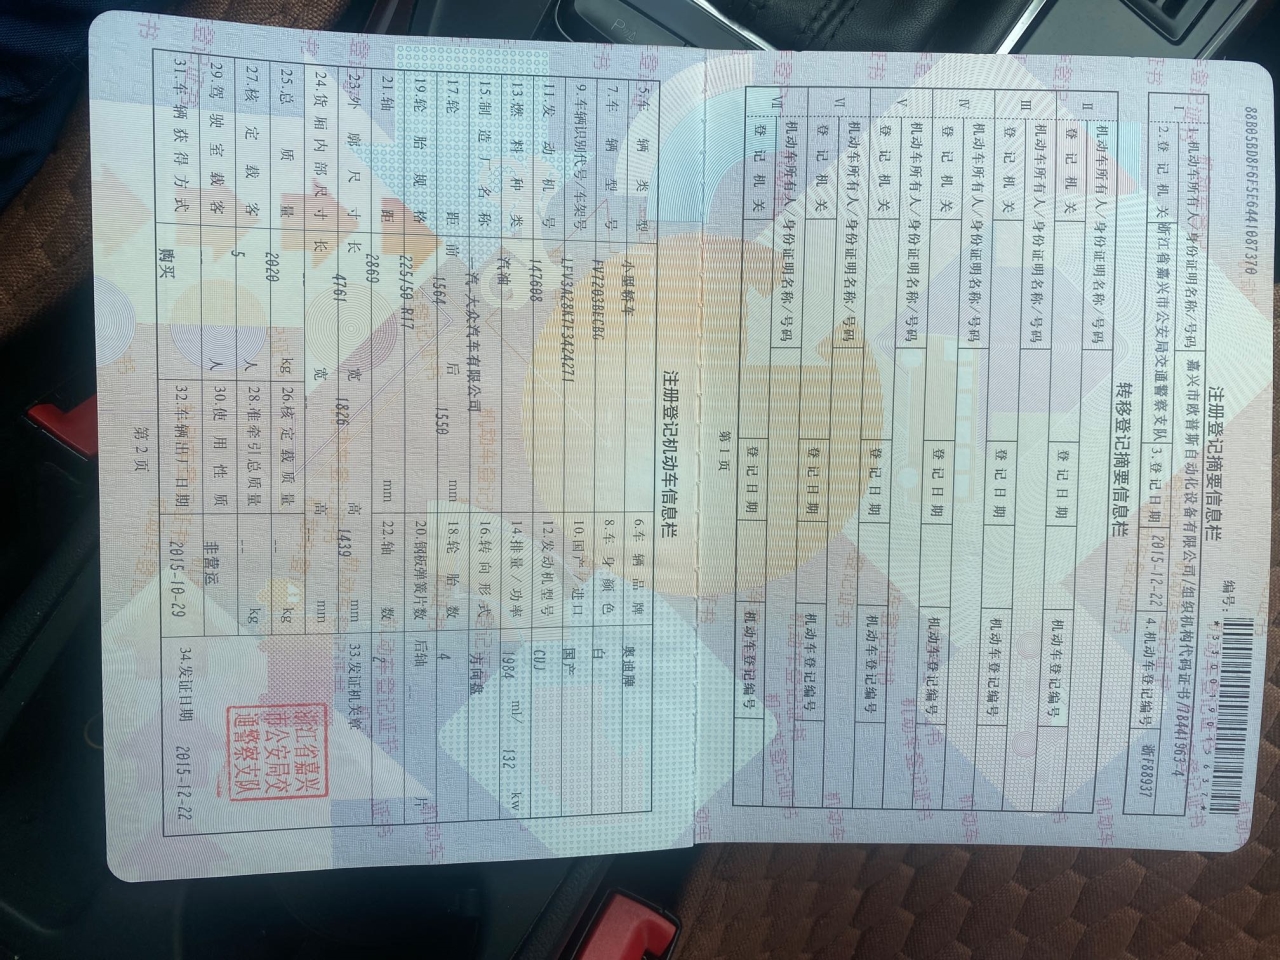 88B05BD8F6F5E6441087370
注册登记摘要信息栏
编号：
Ⅰ 1.机动车所有人/身份证明名称/号码 嘉兴市欧普斯自动化设备有限公司/组织机构代码证书/78441963-4
2.登记机关 浙江省嘉兴市公安局交通警察支队 3.登记日期 2015-12-22 4.机动车登记编号 浙F88937
转移登记摘要信息栏
Ⅱ 机动车所有人/身份证明名称/号码
登记机关 登记日期 机动车登记编号
Ⅲ 机动车所有人/身份证明名称/号码
登记机关 登记日期 机动车登记编号
Ⅳ 机动车所有人/身份证明名称/号码
登记机关 登记日期 机动车登记编号
Ⅴ 机动车所有人/身份证明名称/号码
登记机关 登记日期 机动车登记编号
Ⅵ 机动车所有人/身份证明名称/号码
登记机关 登记日期 机动车登记编号
Ⅶ 机动车所有人/身份证明名称/号码
登记机关 登记日期 机动车登记编号
第1页
注册登记机动车信息栏
5.车辆类型 小型轿车 6.车辆品牌 奥迪牌
7.车辆型号 8.车身颜色 白
9.车辆识别代号/车架号 LFV3A28K7F3424271 10.国产/进口 国产
11.发动机号 147608 12.发动机型号 CUJ
13.燃料种类 汽油 14.排量/功率 1984 ml/ 132 kw
15.制造厂名称 一汽-大众汽车有限公司 16.转向形式 方向盘
17.轮距 前 1564 后 1550 mm 18.轮胎数 4
19.轮胎规格 225/50 R17 20.钢板弹簧片数 后轴 -- 片
21.轴距 2869 mm 22.轴数 2
23.外廓尺寸 长 4761 宽 1826 高 1439 mm 33.发证机关章
24.货厢内部尺寸 长 -- 宽 -- 高 -- mm
25.总质量 2020 kg 26.核定载质量 -- kg
27.核定载客 5 人 28.准牵引总质量 -- kg
29.驾驶室载客 -- 人 30.使用性质 非营运
31.车辆获得方式 购买 32.车辆出厂日期 2015-10-29 34.发证日期 2015-12-22
浙江省嘉兴
市公安局交
通警察支队
第2页